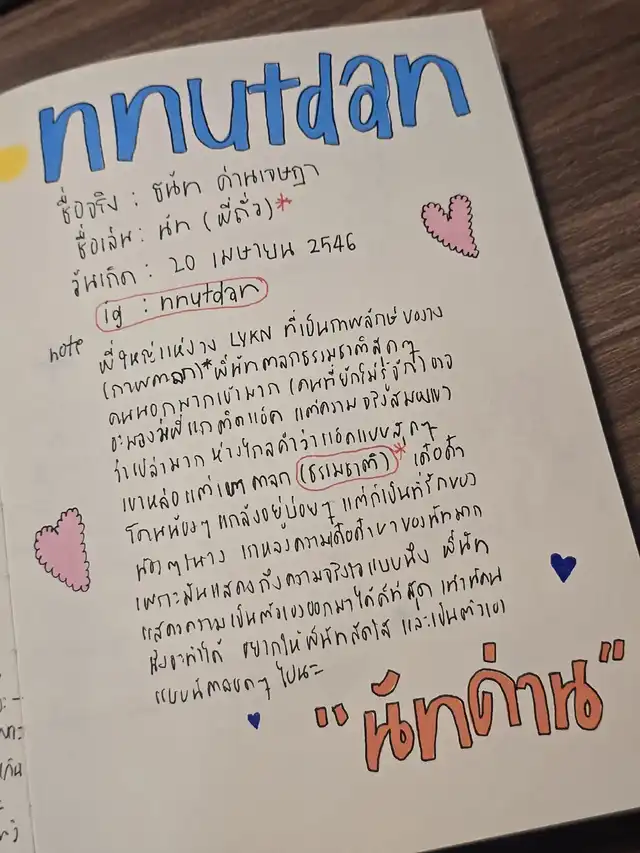 nnutdan
ชื่อจริง : ธนัท ด่านเจษฎา
ชื่อเล่น : นัท (พี่ถั่ว)*
วันเกิด : 20 เมษายน 2546
ig : nnutdan
note
พี่ใหญ่แห่งวง LYKN ที่เป็นภาพลักษ์ของวง
(ภาพตลก)* พี่นัทตลกธรรมชาติสุดๆ
คนนอกมากเข้ามาก (คนที่ยังไม่รู้จัก) อาจ
จะมองว่าพี่แกติดแอ๊ค แต่ความจริงคู่
ว่าเปล่ามาก ห่างไกลคำว่าแอ๊คแบบสุดๆ
เขาหล่อแต่เขาตลก (ธรรมชาติ)* เดื๋อด๋า
โดนน้องๆ แกล้งอยู่บ่อยๆ แต่ก็เป็นที่รักของ
น้องๆในวง เราหลงความเดื๋อด๋าของนัทมาก
เพราะมันแสดงถึงความจริงใจแบบนึง พี่นัท
แสดงความเป็นตัวเองออกมาได้ดีที่สุด เท่าที่คน
นึงจะทำได้ อยากให้พี่นัทสดใส และเป็นตัวเอง
แบบนี้ตลอดๆ ไปนะ
"นัทด่าน"